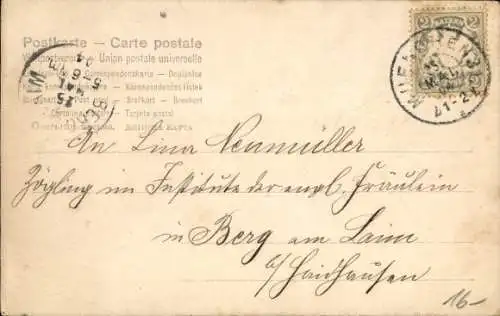 Postkarte – Carte postale
Weltpostverein – Union postale universelle
Correspondenzkarte – Dopisnice
Korespondenčni listek
Briefkart – Brevkort
Tarjeta postal
2 BAYERN 2
MUENCHEN
MAI
BERG
An Lina Neumüller
Zögling im Institute der engl. Fräulein
in Berg am Laim
b/ Haidhausen
16-